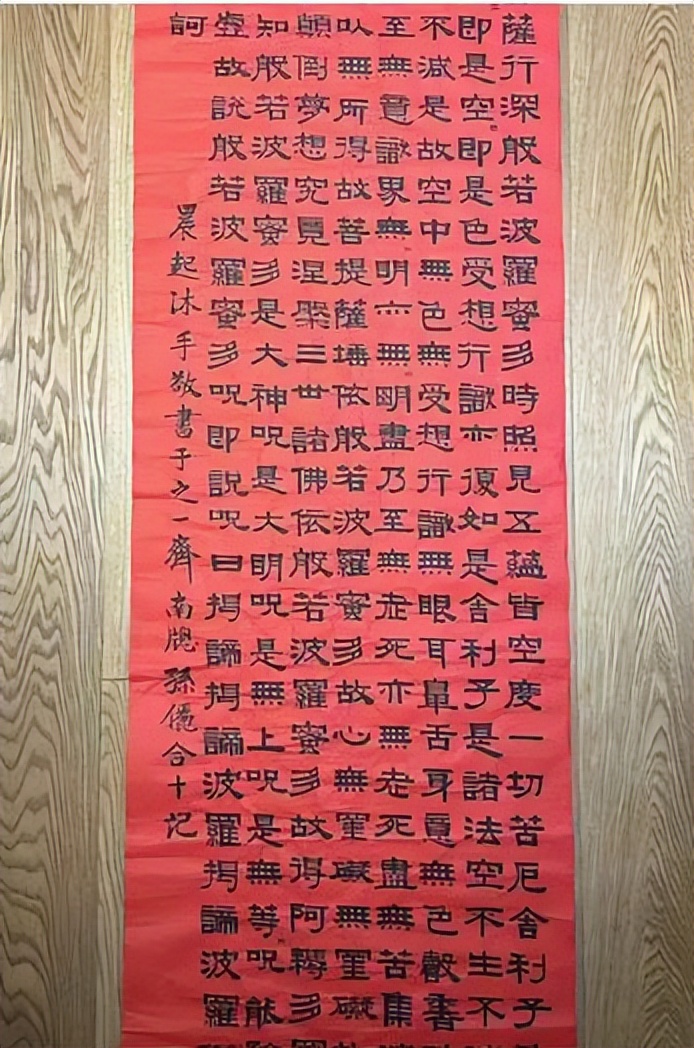 薩行深般若波羅蜜多時照見五蘊皆空度一切苦厄舍利子
即是空即是色受想行識亦復如是舍利子是諸法空不生不
不減是故空中無色無受想行識無眼耳鼻舌身意無色聲香
至無意識界無明亦無明盡乃至無老死亦無老死盡無苦集
以無所得故菩提薩埵依般若波羅蜜多故心無罣礙無罣礙
顛倒夢想究竟涅槃三世諸佛依般若波羅蜜多故得阿耨多
知般若波羅蜜多是大神呪是大明呪是無上呪是無等呪能
虛故説般若波羅蜜多呪即説呪曰揭諦揭諦波羅揭諦波羅
訶
晨起沐手敬書于之一齋南牕孫儷合十記